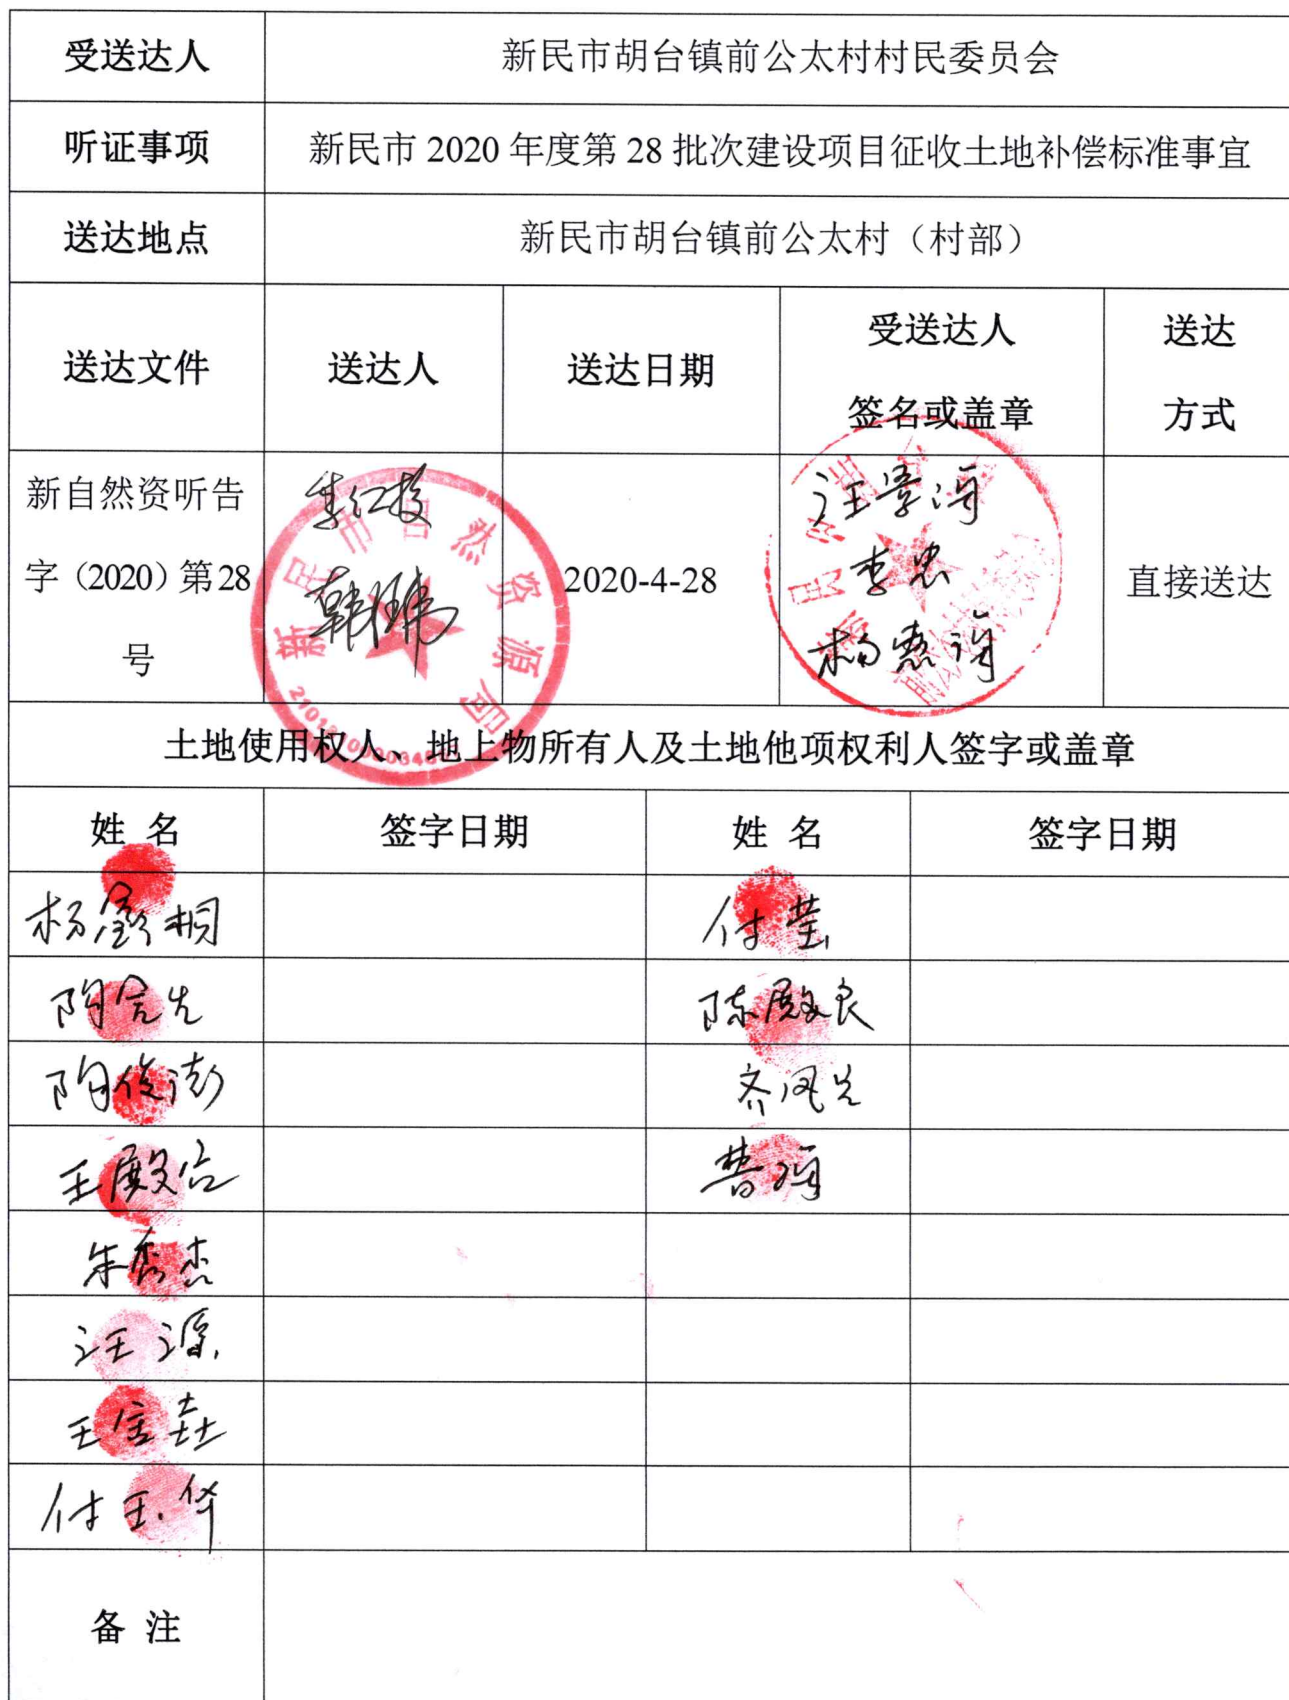 受送达人
新民市胡台镇前公太村村民委员会
听证事项
新民市 2020 年度第 28 批次建设项目征收土地补偿标准事宜
送达地点
新民市胡台镇前公太村（村部）
送达文件
送达人
送达日期
受送达人
签名或盖章
送达
方式
新自然资听告
字（2020）第28
号
新民市自然资源局
2020-4-28
李忠
直接送达
土地使用权人、地上物所有人及土地他项权利人签字或盖章
姓 名
签字日期
姓 名
签字日期
付莹
陈殿良
齐凤先
王殿启
朱秀杰
汪源
备 注